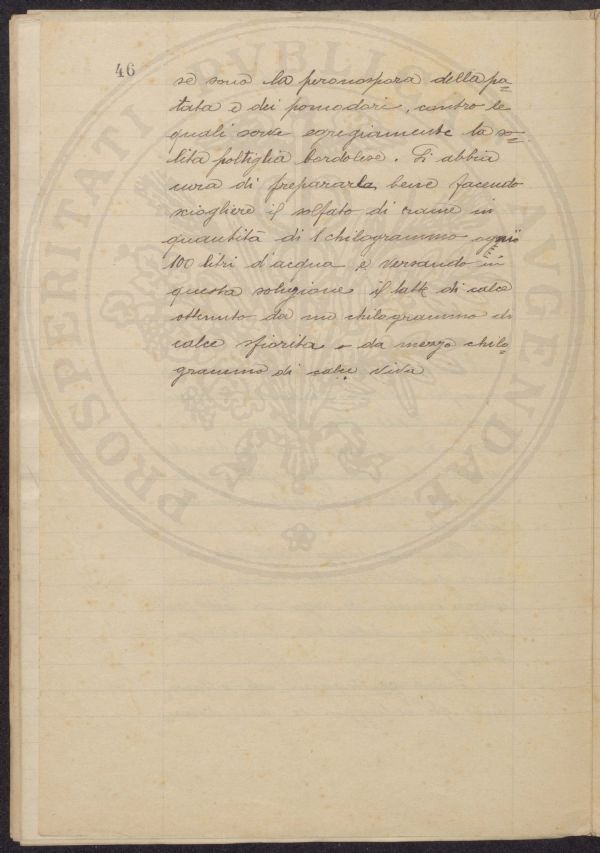 46
se sono la peronospora della pa=
tata e dei pomodori, contro le
quali serve egregiamente la so=
lita poltiglia bordolese. Si abbia
cura di prepararla bene facendo
sciogliere il solfato di rame in
quantità di 1 chilogrammo ogni
100 litri d'acqua e versando in
questa soluzione il latte di calce
ottenuto da un chilogrammo di
calce sfiorita o da mezzo chilo=
grammo di calce viva
PROSPERITATI PVBLICAE AVGENDAE